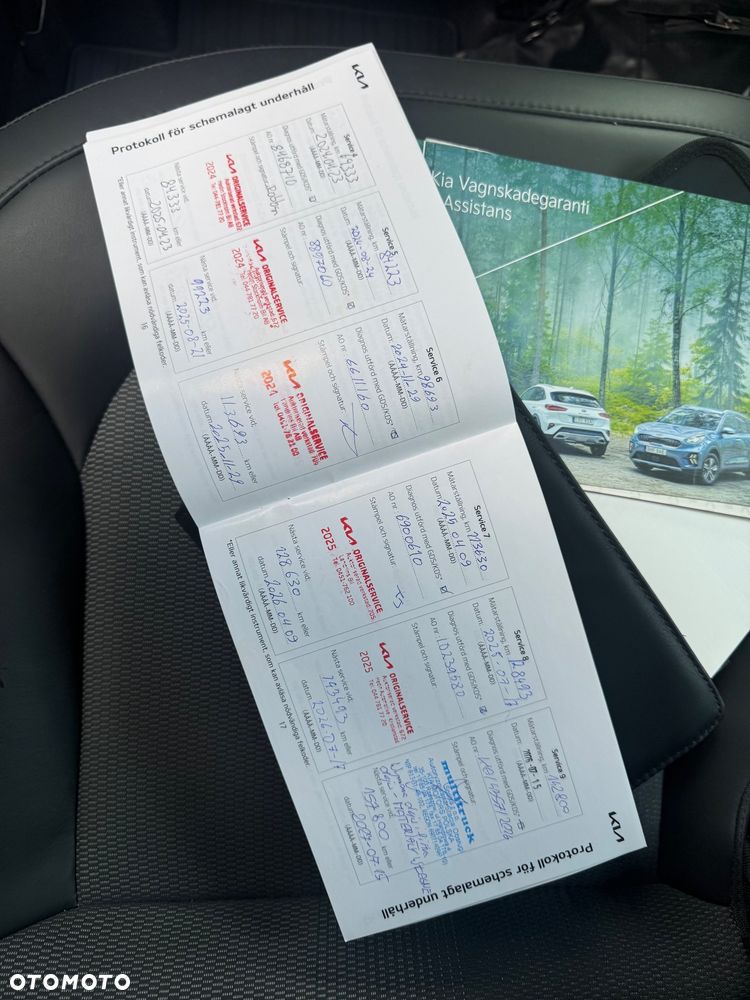 KIA
Protokoll för schemalagt underhåll
Service 4
Mätarställning, km 69333
Datum: 2024.04.23
(ÅÅÅÅ-MM-DD)
Diagnos utförd med GDS/KDS*
AO nr: 8468710
Stämpel och signatur:
KIA ORIGINALSERVICE
2024
Tel 044-781 77 20
Nästa service vid:
84333 km eller
datum: 2026.04.23
(ÅÅÅÅ-MM-DD)
Service 5
Mätarställning, km 84223
Datum: 2024-08-24
(ÅÅÅÅ-MM-DD)
Diagnos utförd med GDS/KDS*
AO nr: 8897060
Stämpel och signatur:
KIA ORIGINALSERVICE
2024
Tel 044-781 77 20
Nästa service vid:
99223 km eller
datum: 2025-08-21
(ÅÅÅÅ-MM-DD)
Service 6
Mätarställning, km 98693
Datum: 2024-11-29
(ÅÅÅÅ-MM-DD)
Diagnos utförd med GDS/KDS*
AO nr: 6611160
Stämpel och signatur:
KIA ORIGINALSERVICE
2024
Nästa service vid:
113693 km eller
datum: 2025-11-29
(ÅÅÅÅ-MM-DD)
*Eller annat likvärdigt instrument, som kan avläsa nödvändiga felkoder.
16
Service 7
Mätarställning, km 113630
Datum: 2025 04 09
(ÅÅÅÅ-MM-DD)
Diagnos utförd med GDS/KDS*
AO nr: 6900610
Stämpel och signatur:
KIA ORIGINALSERVICE
2025
Nästa service vid:
128630 km eller
datum: 2026 04 09
(ÅÅÅÅ-MM-DD)
Service 8
Mätarställning, km 128493
Datum: 2025-07-17
(ÅÅÅÅ-MM-DD)
Diagnos utförd med GDS/KDS*
AO nr: 10239680
Stämpel och signatur:
KIA ORIGINALSERVICE
2025
Tel 044-781 77 20
Nästa service vid:
143493 km eller
datum: 2026-07-17
(ÅÅÅÅ-MM-DD)
Service 9
Mätarställning, km 142800
Datum:
(ÅÅÅÅ-MM-DD)
Diagnos utförd med GDS/KDS*
AO nr:
Stämpel och signatur:
multitruck
Nästa service vid:
157800 km eller
datum:
(ÅÅÅÅ-MM-DD)
*Eller annat likvärdigt instrument, som kan avläsa nödvändiga felkoder.
17
KIA
Protokoll för schemalagt underhåll
Kia Vagnskadegaranti
Assistans
OTOMOTO